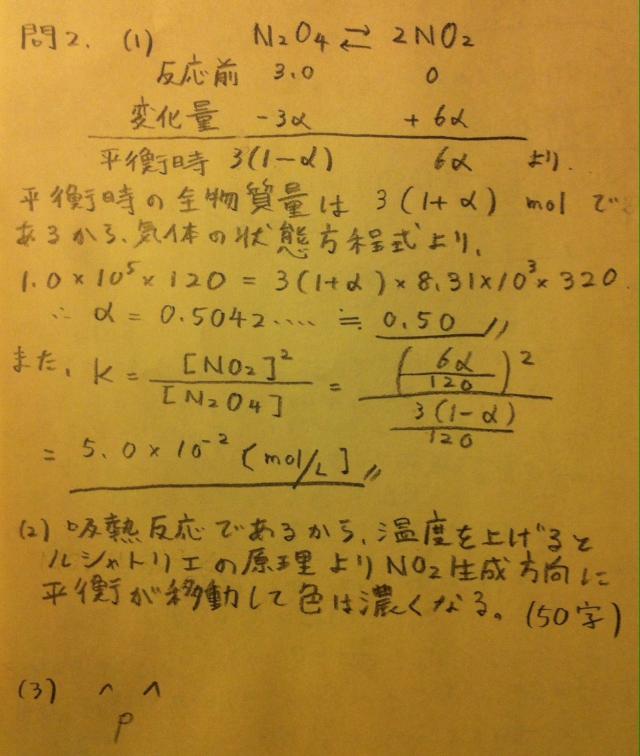 問2. (1) N₂O₄ ⇄ 2NO₂
反応前 3.0 0
変化量 -3α +6α
平衡時 3(1-α) 6α より.
平衡時の全物質量は 3(1+α) mol で
あるから、気体の状態方程式より,
1.0×10⁵×120 = 3(1+α)×8.31×10³×320
∴ α = 0.5042.... ≒ 0.50 //
また, K = [NO₂]² / [N₂O₄] = (6α/120)² / (3(1-α)/120)
= 5.0×10⁻² [mol/L] //
(2) 吸熱反応であるから、温度を上げると
ルシャトリエの原理よりNO₂生成方向に
平衡が移動して色は濃くなる。(50字)
(3) ^ ^
p